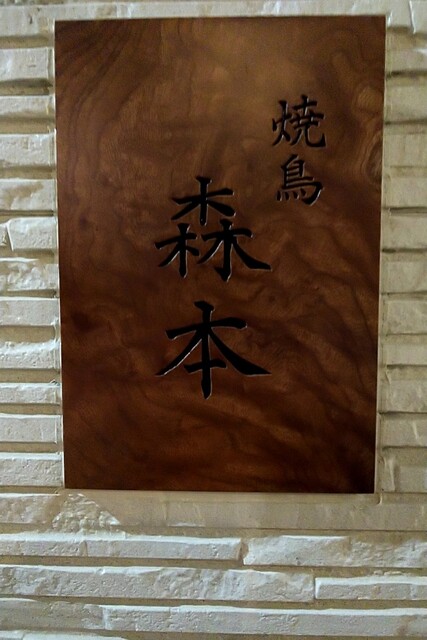 焼鳥
森本